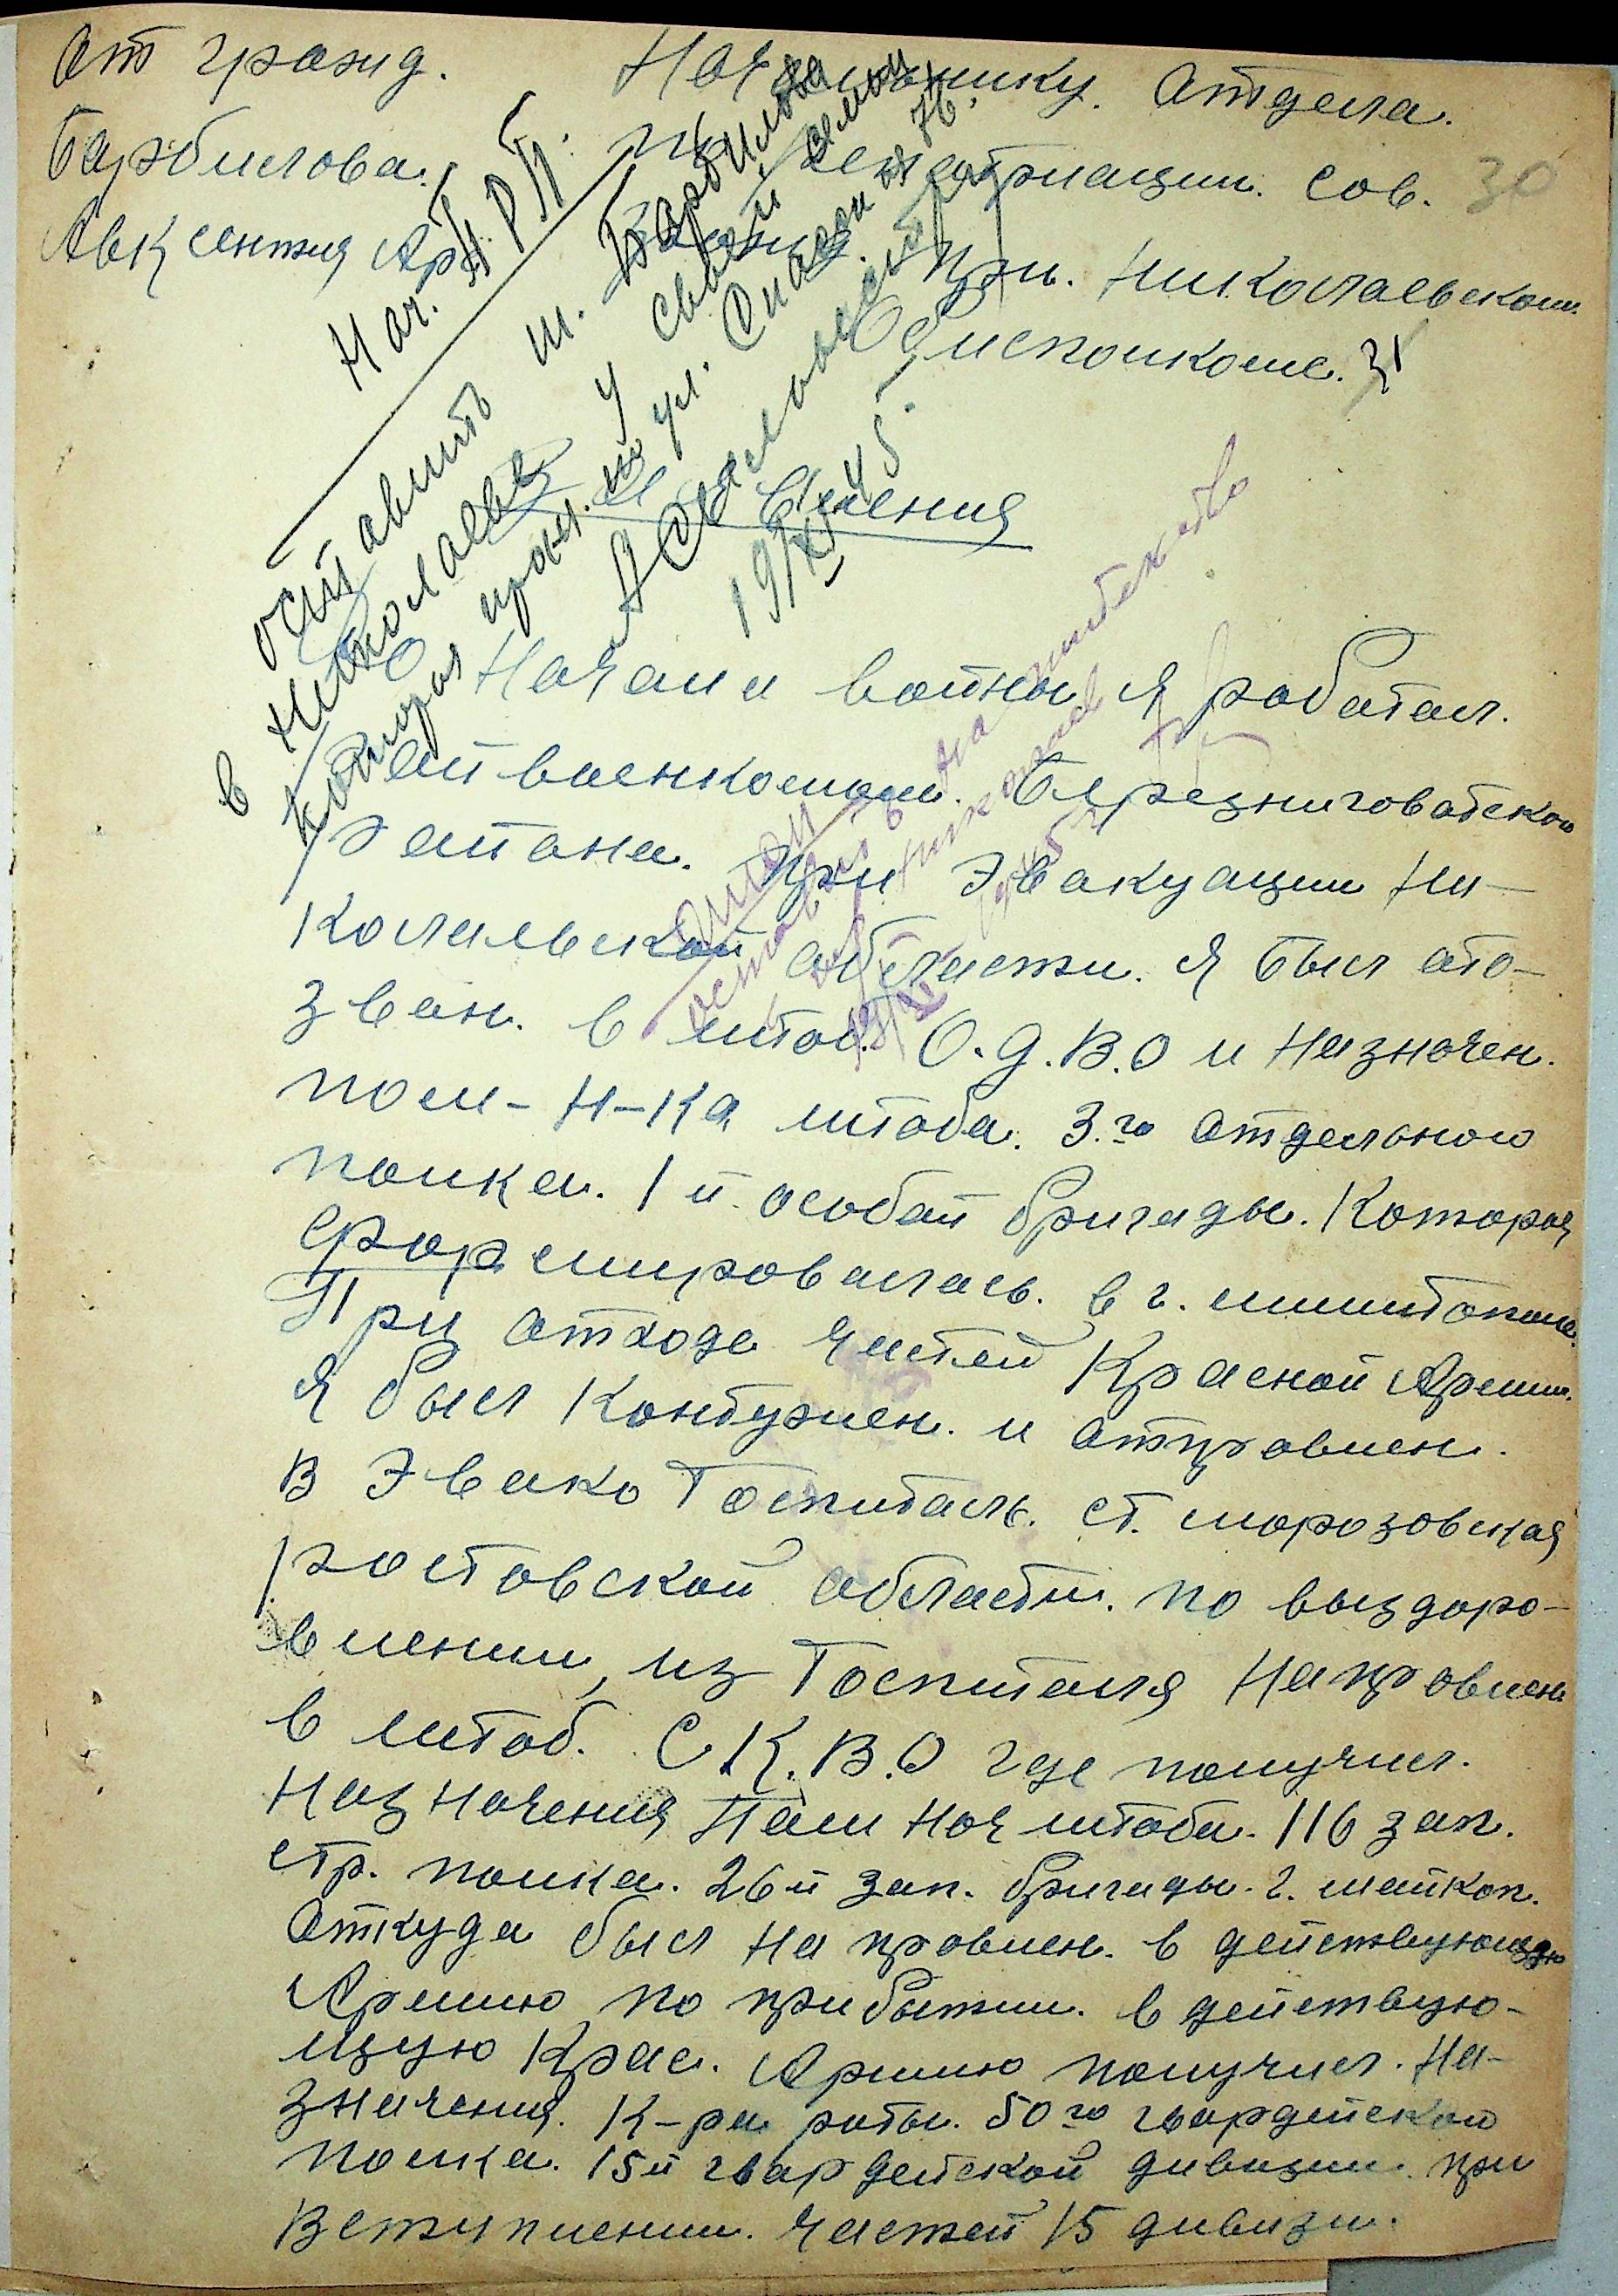 От гражд.
Барбилова.
Авксентия Ар
Начальнику. Отдела.
по Репатриации. Сов. 30
При. Николаевском
Облисполкоме. 31
Нач. П.Р.П.
оставить т. Барбилова
в Николаеве у своей семьи
которая прож. по ул.
19/XI 45.
Заявления
С Начала войны я работал.
Райвоенкомом. Березниговатского
Района. При Эвакуации Ни-
колаевской области. я был ото-
зван. в штаб. О.Д.В.О и назначен.
пом-Н-ка штаба. 3.го отдельного
полка. 1й особой бригады. Которая
формировалась. в г. милитополе.
При отходе частей Красной Армии.
я был Контужен. и отправлен.
В Эвако Госпиталь. ст. морозовская
Ростовской области. по выздоро-
влении, из Госпиталя Направлен
в штаб. С.К.В.О где получил.
Назначения Пом Нач штаба. 116 зап.
стр. полка. 26й зап. бригады. г. майкоп.
Откуда был направлен. в действующую
Армию по прибытии. в действую-
щую Крас. Армию получил. На-
значения. К-ра роты. 50го гвардейского
полка. 15й гвардейской дивизии. при
Вступлении. частей 15 дивизи.